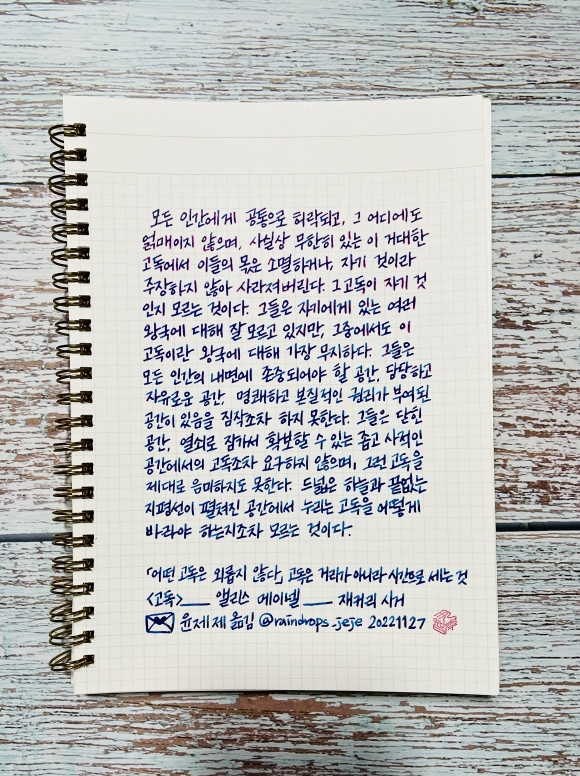 모든 인간에게 공통으로 허락되고, 그 어디에도
얽매이지 않으며, 사실상 무한히 있는 이 거대한
고독에서 이들의 몫은 소멸하거나, 자기 것이라
주장하지 않아 사라져버린다. 그 고독이 자기 것
인지 모르는 것이다. 그들은 자기에게 있는 여러
왕국에 대해 잘 모르고 있지만, 그중에서도 이
고독이란 왕국에 대해 가장 무지하다. 그들은
모든 인간의 내면에 존중되어야 할 공간, 당당하고
자유로운 공간, 명쾌하고 본질적인 권리가 부여된
공간이 있음을 짐작조차 하지 못한다. 그들은 닫힌
공간, 열쇠로 잠가서 확보할 수 있는 좁고 사적인
공간에서의 고독조차 요구하지 않으며, 그런 고독을
제대로 음미하지도 못한다. 드넓은 하늘과 끝없는
지평선이 펼쳐진 공간에서 누리는 고독을 어떻게
바라야 하는지조차 모르는 것이다.
「어떤 고독은 외롭지 않다」 고독은 거리가 아니라 시간으로 세는 것
<고독>___ 앨리스 메이넬 ___ 재커리 시거
윤제제 옮김 @raindrops_jeje 20221127